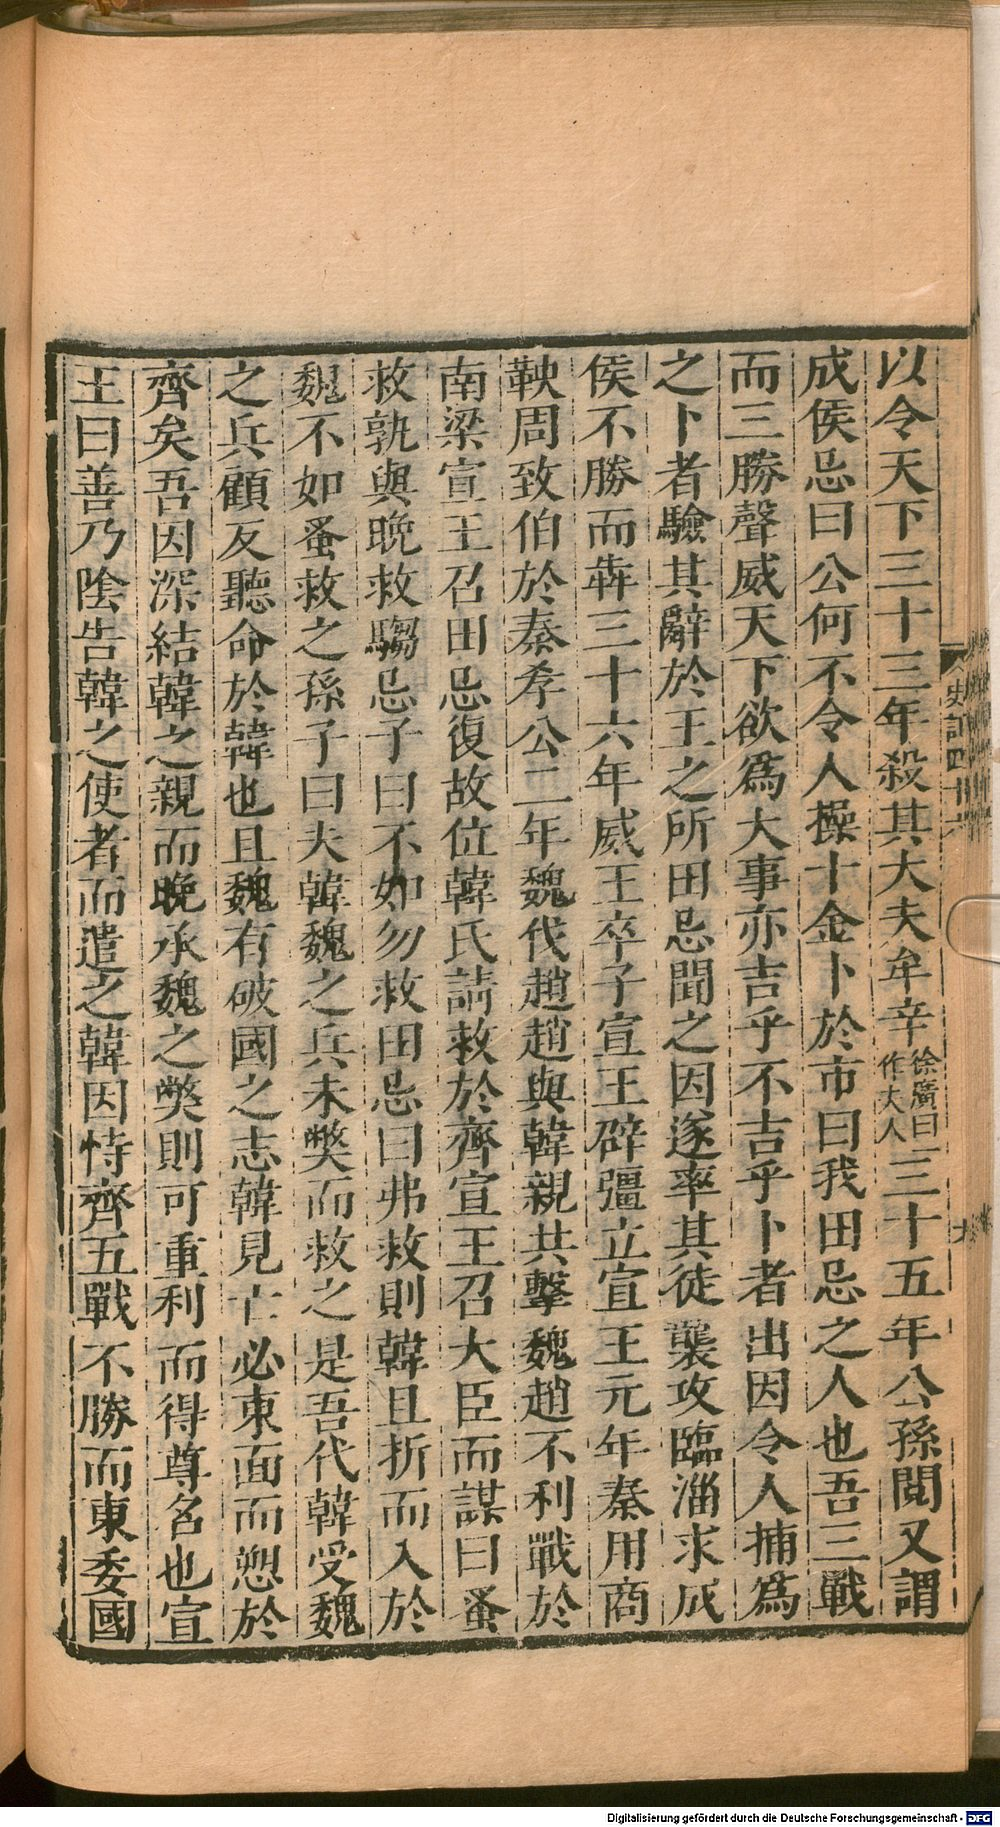 以令天下三十三年殺其大夫牟辛徐廣曰一作大人三十五年公孫閱又謂
成侯忌曰公何不令人操十金卜於市曰我田忌之人也吾三戰
而三勝聲威天下欲爲大事亦吉乎不吉乎卜者出因令人捕爲
之卜者驗其辭於王之所田忌聞之因遂率其徒襲攻臨淄求成
侯不勝而犇三十六年威王卒子宣王辟彊立宣王元年秦用商
鞅周致伯於秦孝公二年魏伐趙趙與韓親共擊魏趙不利戰於
南梁宣王召田忌復故位韓氏請救於齊宣王召大臣而謀曰蚤
救孰與晚救騶忌子曰不如勿救田忌曰弗救則韓且折而入於
魏不如蚤救之孫子曰夫韓魏之兵未獘而救之是吾代韓受魏
之兵顧反聽命於韓也且魏有破國之志韓見亡必東面而愬於
齊矣吾因深結韓之親而晚承魏之獘則可重利而得尊名也宣
王曰善乃陰告韓之使者而遣之韓因恃齊五戰不勝而東委國
史記四十六
Digitalisierung gefördert durch die Deutsche Forschungsgemeinschaft - DFG